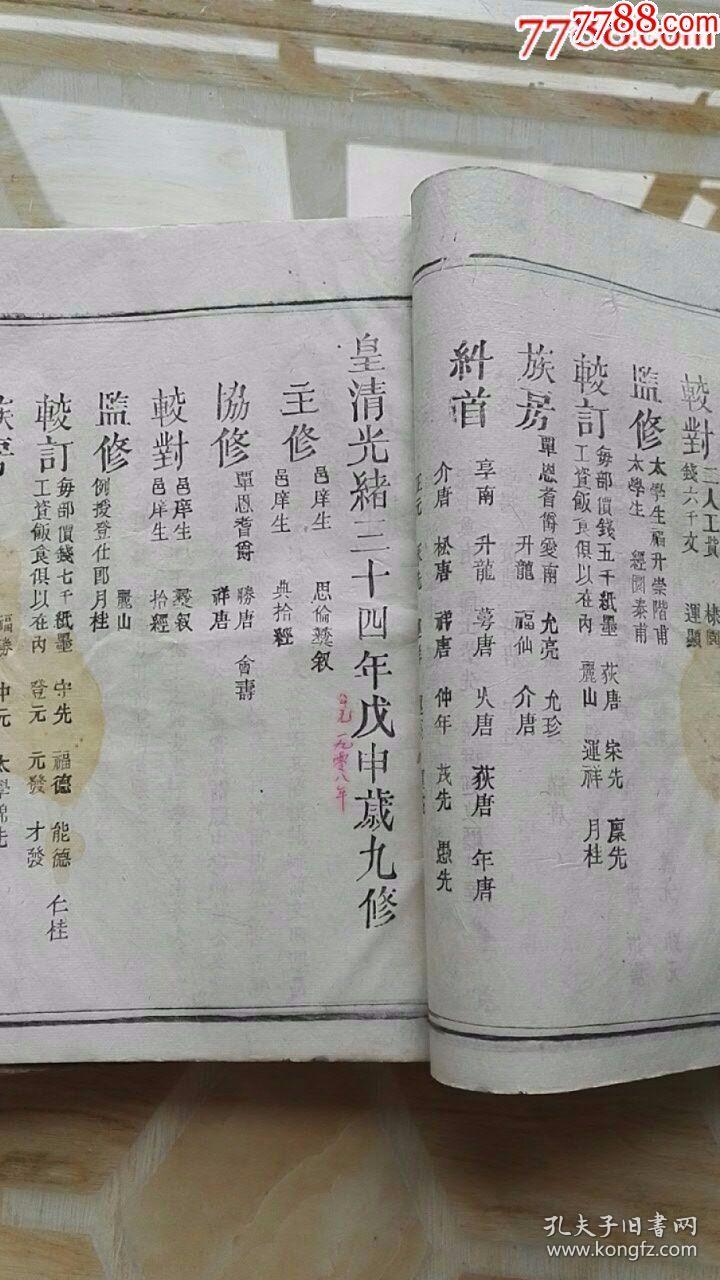 7788.com
7788.com
較對 三人工貲
錢六千文
運顯
監修 太學生 届升 崇階甫
太學生 經園 泰甫
較訂 每部價錢五千紙墨 荻唐 宋先 稟先
工貲飯食俱以在內 麗山 運祥 月桂
族房 覃恩耆爵 愛南 允亮 允珍
升龍 福仙 介唐
糾首 享南 升龍 蕚唐 火唐 荻唐 年唐
介唐 松唐 祥唐 仲年 茂先 愚先
皇清光緒三十四年戊申歲九修
公元一九零八年
主修 邑庠生 思倫 彝叙
邑庠生 典拾 經
協修 覃恩耆爵 勝唐 會壽
祥唐
較對 邑庠生 彝叙
邑庠生 拾經
監修 麗山
例授登仕郎 月桂
較訂 每部價錢七千紙墨 守先 福德 能德 仁桂
工貲飯食俱以在內 登元 元發 才發
族房 福勝 仲元 太學錦先
孔夫子旧書网
www.kongfz.com